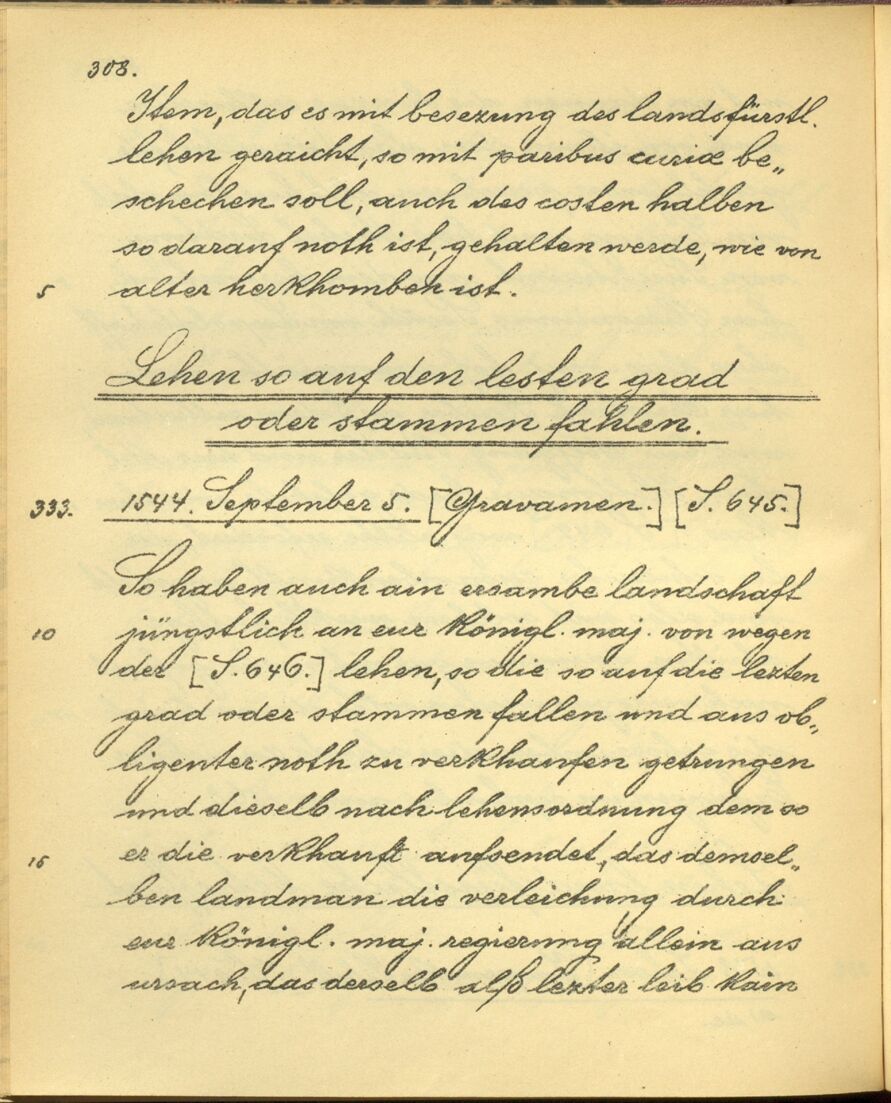 308.
Item, das es mit besezung des landsfürstl.
lehen geraicht, so mit paribus curiæ be„
schechen soll, auch des costen halben
so darauf noth ist, gehalten werde, wie von
5 alter herkhomben ist.
Lehen so auf den lesten grad
oder stammen fahlen.
333. 1544. September 5. [Gravamen.] [S. 645.]
So haben auch ain ersambe landschaft
10 jüngstlich an eur königl. maj. von wegen
der [S. 646.] lehen, so die so auf die lezten
grad oder stammen fallen und aus ob„
ligenter noth zu verkhaufen getrungen
und dieselb nach lehensordnung dem so
15 er die verkhauft aufsendet, das demsel„
ben landman die verleichung durch
eur königl. maj. regierung allein aus
ursach, das derselb alß lezter leib kain